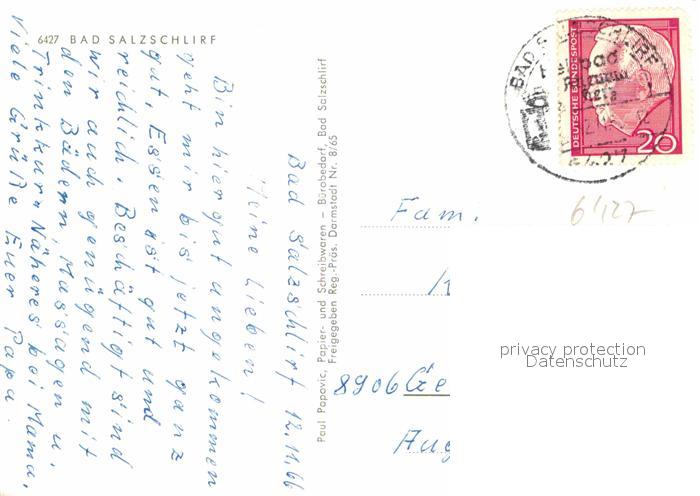 6427 BAD SALZSCHLIRF
Bad Salzschlirf 12.11.66
Meine Lieben!
Bin hier gut angekommen
geht mir bis jetzt ganz
gut, Essen ist gut und
reichlich. Beschäftigt sind
wir auch genügend mit
den Bädern, Massagen u.
Trinkkur. Näheres bei Mama.
Viele Grüße Euer Papa.
Paul Popovic, Papier- und Schreibwaren – Bürobedarf, Bad Salzschlirf
Freigegeben Reg.-Präs. Darmstadt Nr. 8/65
DEUTSCHE BUNDESPOST
20
BAD SALZSCHLIRF
Fam.
6427
8906 Ge
Aug
privacy protection
Datenschutz